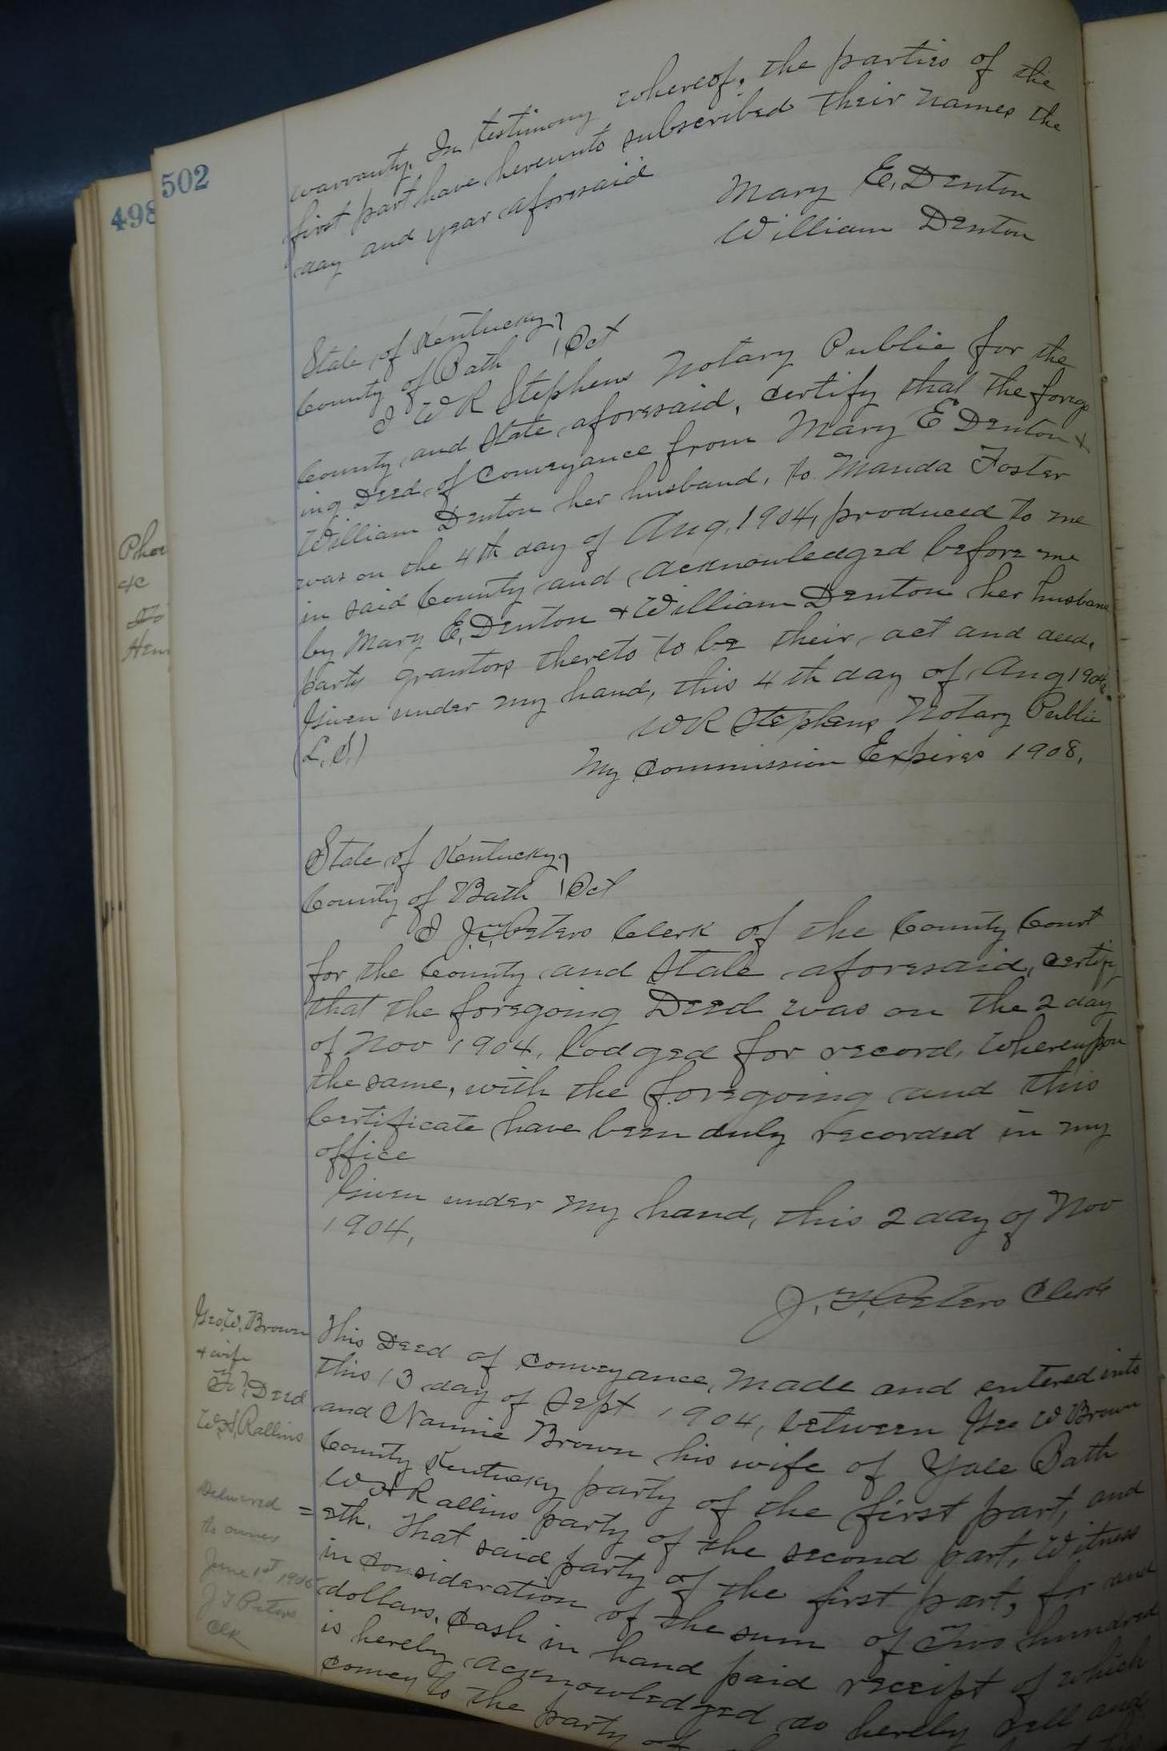 502
498
warranty. In testimony whereof, the parties of the
first part have hereunto subscribed their names the
day and year aforesaid
Mary E. Denton
William Denton
State of Kentucky
County of Bath Sct
I W R Stephens Notary Public for the
County and State aforesaid, certify that the forego
ing Deed of Conveyance from Mary E Denton &
William Denton her husband, to Manda Foster
was on the 4th day of Aug, 1904, produced to me
in said County and acknowledged before me
by Mary E, Denton & William Denton her husband
party grantors thereto to be their act and deed.
Given under my hand, this 4th day of Aug 1904.
W R Stephens Notary Public
(L. S.)
My Commission Expires 1908.
State of Kentucky
County of Bath Sct
I J. Peters Clerk of the County Court
for the County and State aforesaid, certify
that the foregoing Deed was on the 2 day
of Nov 1904, lodged for record, Whereupon
the same, with the foregoing and this
Certificate have been duly recorded in my
office
Given under my hand, this 2 day of Nov
1904,
J. T. Peters Clerk
Geo, W. Brown
& wife
To Deed
W. A. Rallins
Delivered
to owner
June 1st
J T Peters
Clk
This Deed of Conveyance, Made and entered into
this 13 day of Sept 1904, between Geo W Brown
and Nannie Brown his wife of Yale Bath
County Kentucky party of the first part, and
W A Rallins party of the second part, Witness
=eth. That said party of the first part, for and
in consideration of the sum of Two hundred
dollars. Cash in hand paid receipt of which
is hereby acknowledged do hereby sell and
convey to the party of